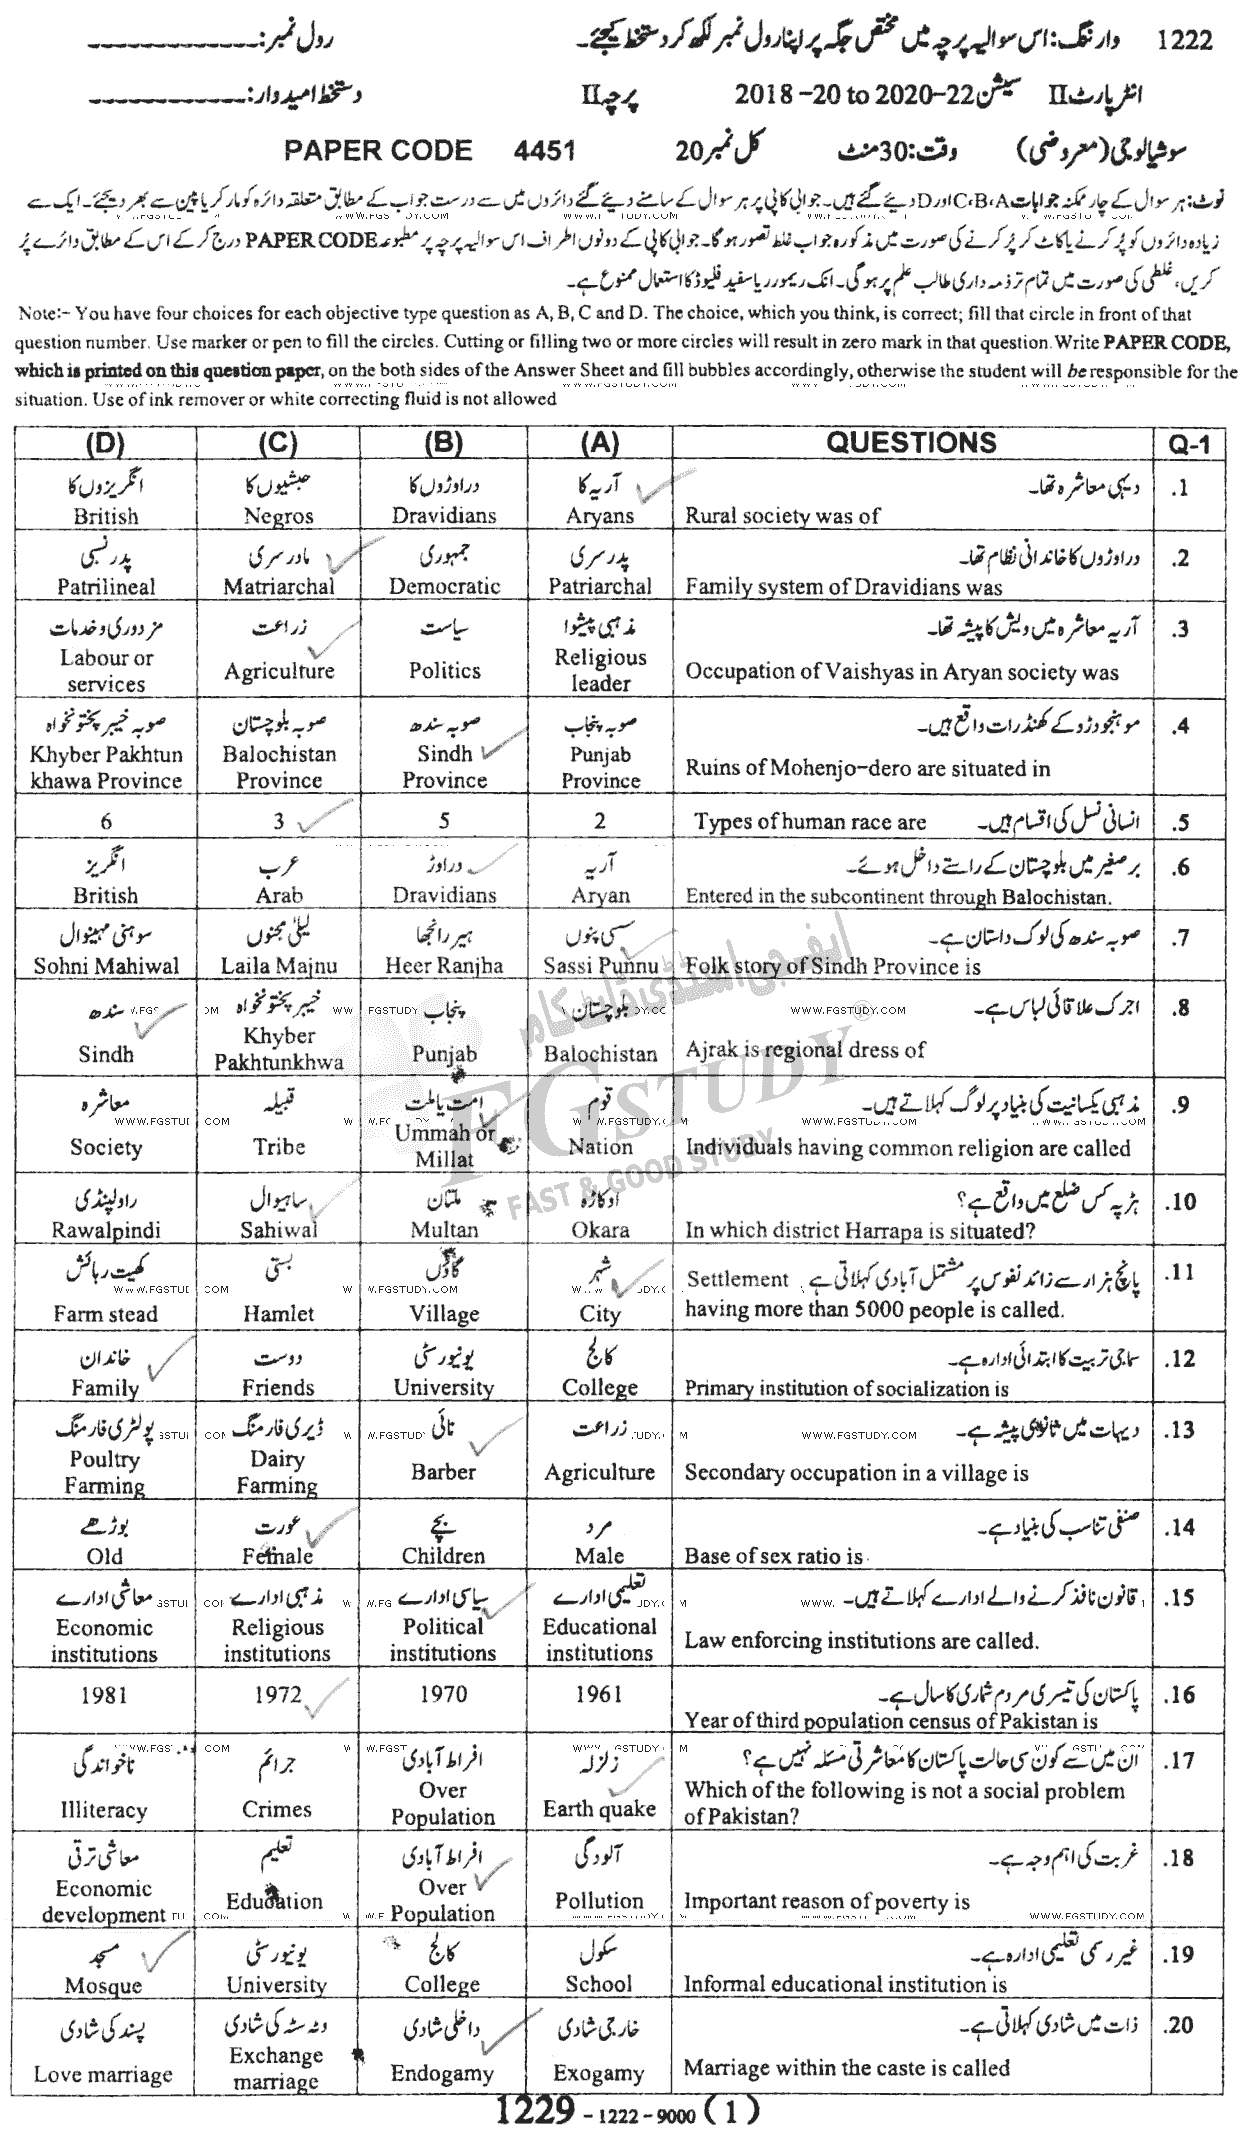 1222 وارننگ: اس سوالیہ پرچہ میں مختص جگہ پر اپنا رول نمبر لکھ کر دستخط کیجئے۔ رول نمبر:
انٹر پارٹ II سیشن 2018-20 to 2020-22 پرچہ II دستخط امیدوار:
سوشیالوجی (معروضی) وقت: 30 منٹ کل نمبر 20 PAPER CODE 4451
نوٹ: ہر سوال کے چار ممکنہ جوابات C، B، A اور D دیئے گئے ہیں۔ جوابی کاپی پر ہر سوال کے سامنے دیئے گئے دائروں میں سے درست جواب کے مطابق متعلقہ دائرہ کو مارکر یا پین سے بھر دیجئے۔ ایک سے
زیادہ دائروں کو پُر کرنے یا کاٹ کر پُر کرنے کی صورت میں مذکورہ جواب غلط تصور ہوگا۔ جوابی کاپی کے دونوں اطراف اس سوالیہ پرچہ پر مطبوعہ PAPER CODE درج کر کے اس کے مطابق دائرے پُر
کریں، غلطی کی صورت میں تمام تر ذمہ داری طالب علم پر ہوگی۔ انک ریمور یا سفید فلیوڈ کا استعمال ممنوع ہے۔
Note:- You have four choices for each objective type question as A, B, C and D. The choice, which you think, is correct; fill that circle in front of that
question number. Use marker or pen to fill the circles. Cutting or filling two or more circles will result in zero mark in that question. Write PAPER CODE,
which is printed on this question paper, on the both sides of the Answer Sheet and fill bubbles accordingly, otherwise the student will be responsible for the
situation. Use of ink remover or white correcting fluid is not allowed
(D) (C) (B) (A) QUESTIONS Q-1
انگریزوں کا حبشیوں کا دراوڑوں کا آریہ کا دیہی معاشرہ تھا۔ .1
British Negros Dravidians Aryans Rural society was of
پدر نسبی مادر سری جمہوری پدر سری دراوڑوں کا خاندانی نظام تھا۔ .2
Patrilineal Matriarchal Democratic Patriarchal Family system of Dravidians was
مزدوری و خدمات زراعت سیاست مذہبی پیشوا آریہ معاشرہ میں ویش کا پیشہ تھا۔ .3
Labour or services Agriculture Politics Religious leader Occupation of Vaishyas in Aryan society was
صوبہ خیبر پختونخواہ صوبہ بلوچستان صوبہ سندھ صوبہ پنجاب موہنجودڑو کے کھنڈرات واقع ہیں۔ .4
Khyber Pakhtun khawa Province Balochistan Province Sindh Province Punjab Province Ruins of Mohenjo-dero are situated in
6 3 5 2 Types of human race are انسانی نسل کی اقسام ہیں۔ .5
انگریز عرب دراوڑ آریہ برصغیر میں بلوچستان کے راستے داخل ہوئے۔ .6
British Arab Dravidians Aryan Entered in the subcontinent through Balochistan.
سوہنی مہینوال لیلیٰ مجنوں ہیر رانجھا سسی پنوں صوبہ سندھ کی لوک داستان ہے۔ .7
Sohni Mahiwal Laila Majnu Heer Ranjha Sassi Punnu Folk story of Sindh Province is
سندھ خیبر پختونخواہ پنجاب بلوچستان اجرک علاقائی لباس ہے۔ .8
Sindh Khyber Pakhtunkhwa Punjab Balochistan Ajrak is regional dress of
معاشرہ قبیلہ امت یا ملت قوم مذہبی یکسانیت کی بنیاد پر لوگ کہلاتے ہیں۔ .9
Society Tribe Ummah or Millat Nation Individuals having common religion are called
راولپنڈی ساہیوال ملتان اوکاڑہ ہڑپہ کس ضلع میں واقع ہے؟ .10
Rawalpindi Sahiwal Multan Okara In which district Harrapa is situated?
کھیت رہائش بستی گاؤں شہر Settlement پانچ ہزار سے زائد نفوس پر مشتمل آبادی کہلاتی ہے .11
Farm stead Hamlet Village City having more than 5000 people is called.
خاندان دوست یونیورسٹی کالج سماجی تربیت کا ابتدائی ادارہ ہے۔ .12
Family Friends University College Primary institution of socialization is
پولٹری فارمنگ ڈیری فارمنگ نائی زراعت دیہات میں ثانوی پیشہ ہے۔ .13
Poultry Farming Dairy Farming Barber Agriculture Secondary occupation in a village is
بوڑھے عورت بچے مرد صنفی تناسب کی بنیاد ہے۔ .14
Old Female Children Male Base of sex ratio is
معاشی ادارے مذہبی ادارے سیاسی ادارے تعلیمی ادارے قانون نافذ کرنے والے ادارے کہلاتے ہیں۔ .15
Economic institutions Religious institutions Political institutions Educational institutions Law enforcing institutions are called.
1981 1972 1970 1961 پاکستان کی تیسری مردم شماری کا سال ہے۔ .16
Year of third population census of Pakistan is
ناخواندگی جرائم افراط آبادی زلزلہ ان میں سے کون سی حالت پاکستان کا معاشرتی مسئلہ نہیں ہے؟ .17
Illiteracy Crimes Over Population Earth quake Which of the following is not a social problem of Pakistan?
معاشی ترقی تعلیم افراط آبادی آلودگی غربت کی اہم وجہ ہے۔ .18
Economic development Education Over Population Pollution Important reason of poverty is
مسجد یونیورسٹی کالج سکول غیر رسمی تعلیمی ادارہ ہے۔ .19
Mosque University College School Informal educational institution is
پسند کی شادی وٹہ سٹہ کی شادی داخلی شادی خارجی شادی ذات میں شادی کہلاتی ہے۔ .20
Love marriage Exchange marriage Endogamy Exogamy Marriage within the caste is called
1229 - 1222 - 9000 ( 1 )
ایف جی اسٹڈی ڈاٹ کام
FG STUDY ©
FAST & GOOD STUDY
WWW.FGSTUDY.COM